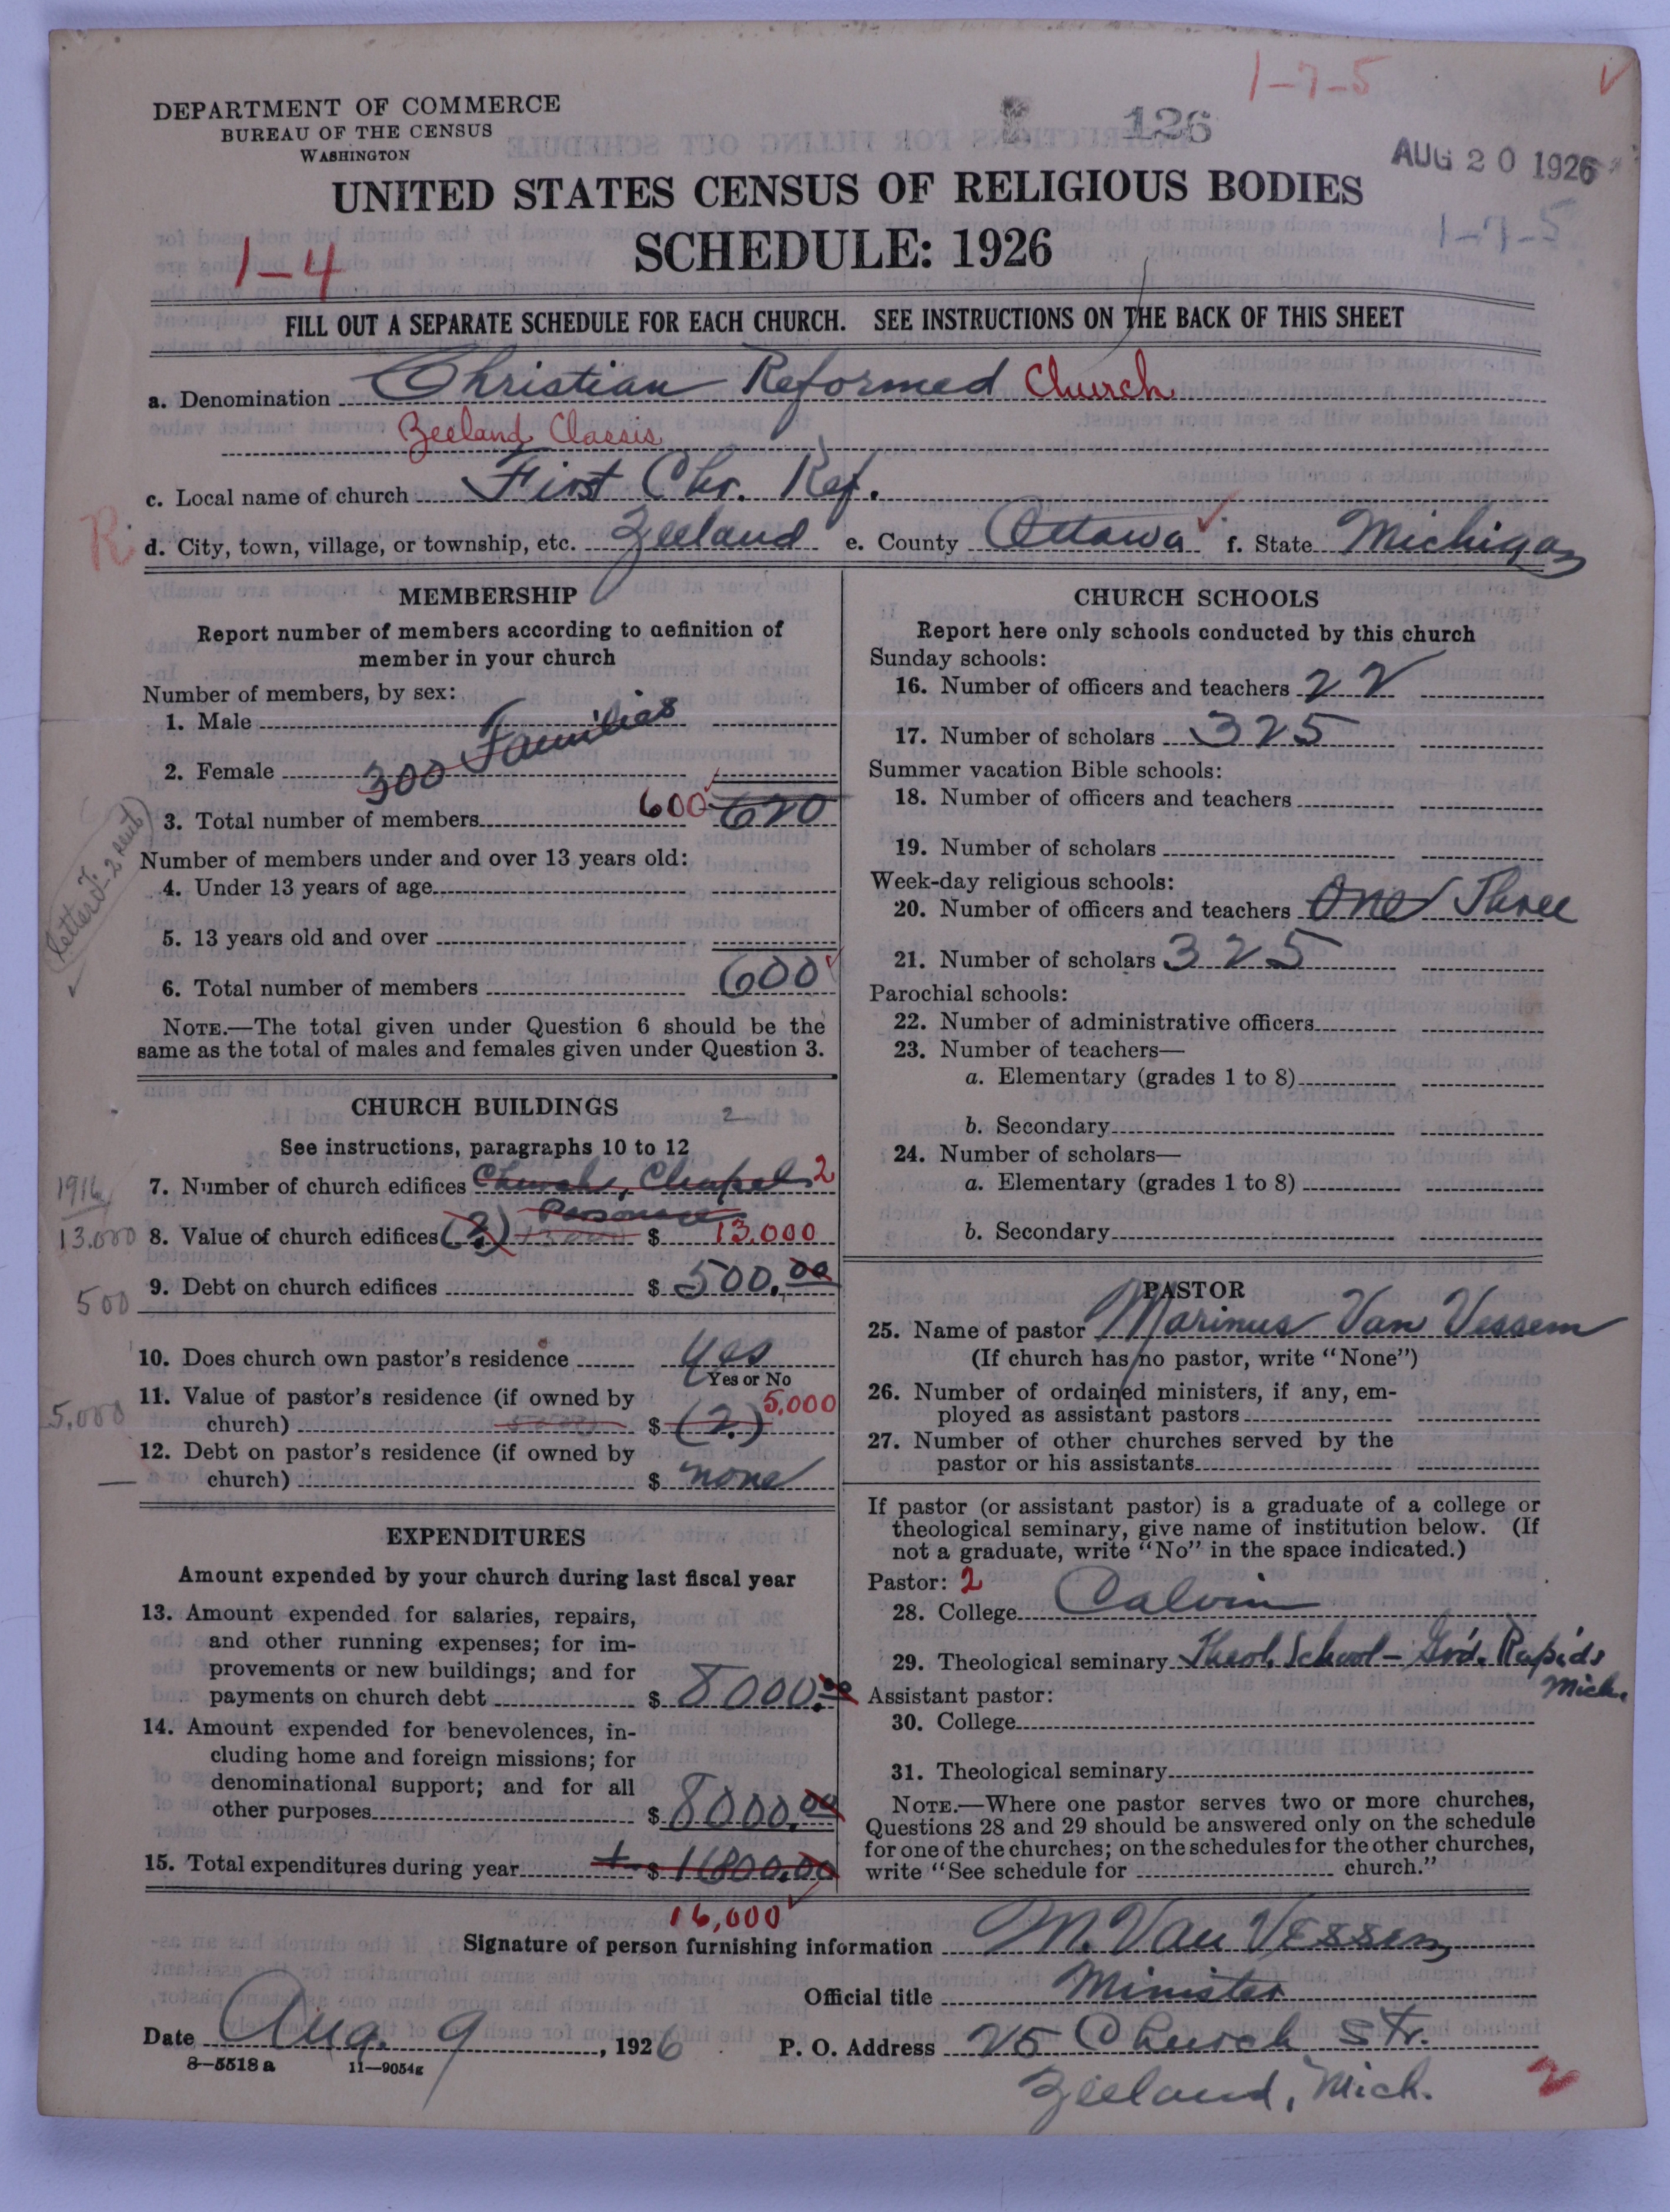 1-7-5
126
AUG 20 1926
1-7-5
DEPARTMENT OF COMMERCE
BUREAU OF THE CENSUS
WASHINGTON
UNITED STATES CENSUS OF RELIGIOUS BODIES
SCHEDULE: 1926
1-4
FILL OUT A SEPARATE SCHEDULE FOR EACH CHURCH. SEE INSTRUCTIONS ON THE BACK OF THIS SHEET
a. Denomination Christian Reformed Church
Zeeland Classis
c. Local name of church First Chr. Ref.
R
d. City, town, village, or township, etc. Zeeland e. County Ottawa f. State Michigan
MEMBERSHIP
Report number of members according to definition of
member in your church
Number of members, by sex:
1. Male
2. Female 300 Families
3. Total number of members 600 620
Number of members under and over 13 years old:
4. Under 13 years of age
5. 13 years old and over
6. Total number of members 600
NOTE.—The total given under Question 6 should be the
same as the total of males and females given under Question 3.
CHURCH BUILDINGS
2
See instructions, paragraphs 10 to 12
7. Number of church edifices Church, Chapel 2
Parsonage
1916
13.000
8. Value of church edifices (2) 13000 $ 13.000
9. Debt on church edifices $ 500.00
500
10. Does church own pastor's residence yes
Yes or No
11. Value of pastor's residence (if owned by
church) $ (2.) 5,000
5,000
12. Debt on pastor's residence (if owned by
church) $ none
EXPENDITURES
Amount expended by your church during last fiscal year
13. Amount expended for salaries, repairs,
and other running expenses; for im-
provements or new buildings; and for
payments on church debt $ 8000.00
14. Amount expended for benevolences, in-
cluding home and foreign missions; for
denominational support; and for all
other purposes $ 8000.00
15. Total expenditures during year $ 16000.00
16,000
CHURCH SCHOOLS
Report here only schools conducted by this church
Sunday schools:
16. Number of officers and teachers 22
17. Number of scholars 325
Summer vacation Bible schools:
18. Number of officers and teachers
19. Number of scholars
Week-day religious schools:
20. Number of officers and teachers One Three
21. Number of scholars 325
Parochial schools:
22. Number of administrative officers
23. Number of teachers—
a. Elementary (grades 1 to 8)
b. Secondary
24. Number of scholars—
a. Elementary (grades 1 to 8)
b. Secondary
PASTOR
25. Name of pastor Marinus Van Vessem
(If church has no pastor, write "None")
26. Number of ordained ministers, if any, em-
ployed as assistant pastors
27. Number of other churches served by the
pastor or his assistants
If pastor (or assistant pastor) is a graduate of a college or
theological seminary, give name of institution below. (If
not a graduate, write "No" in the space indicated.)
Pastor: 2
28. College Calvin
29. Theological seminary Theol. School - Grd. Rapids
Mich.
Assistant pastor:
30. College
31. Theological seminary
NOTE.—Where one pastor serves two or more churches,
Questions 28 and 29 should be answered only on the schedule
for one of the churches; on the schedules for the other churches,
write "See schedule for church."
Signature of person furnishing information M. Van Vessem
Official title Minister
Date Aug. 9, 1926 P. O. Address 25 Church Str.
8-5518 a 11-9054g
Zeeland, Mich.
2